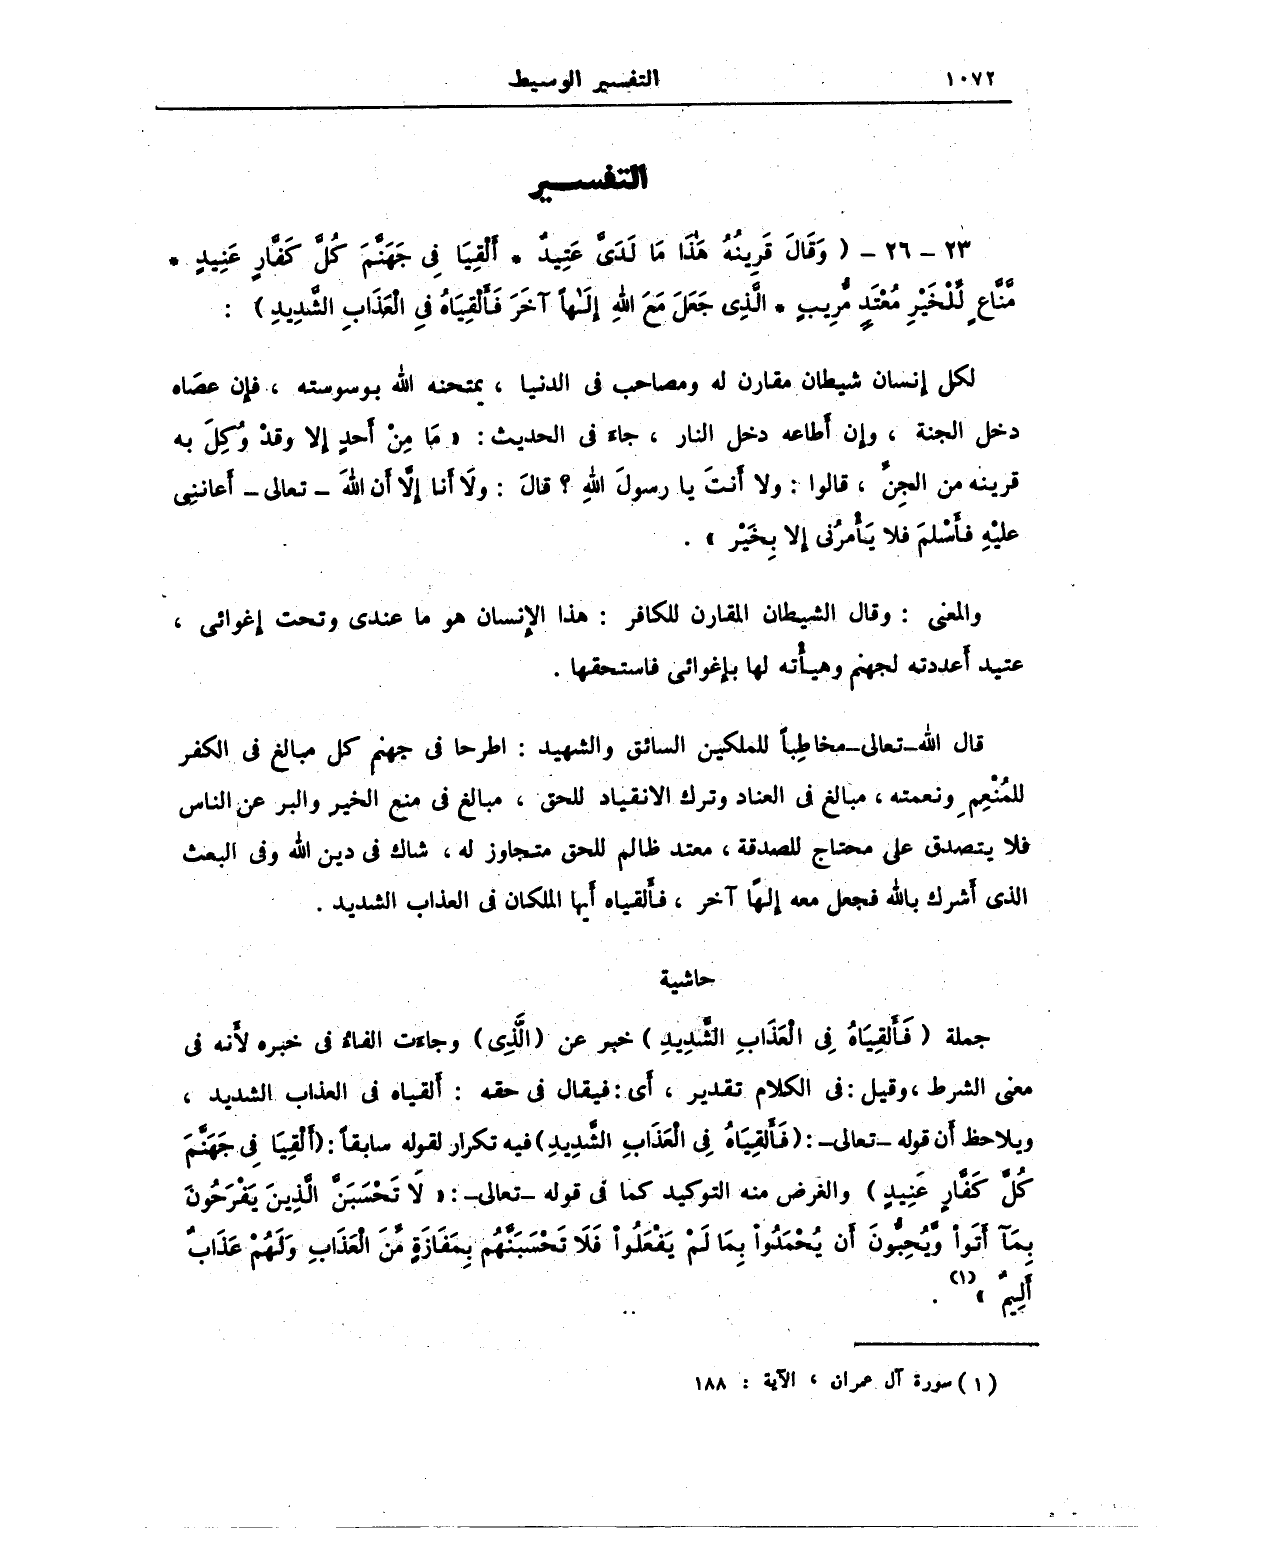 ١٠٧٢
التفسير الوسيط
التفسـير
٢٣ - ٢٦ - ( وَقَالَ قَرِينُهُ هَٰذَا مَا لَدَىَّ عَتِيدٌ * أَلْقِيَا فِى جَهَنَّمَ كُلَّ كَفَّارٍ عَنِيدٍ *
مَّنَّاعٍ لِّلْخَيْرِ مُعْتَدٍ مُّرِيبٍ * الَّذِى جَعَلَ مَعَ اللهِ إِلَٰهاً آخَرَ فَأَلْقِيَاهُ فِى الْعَذَابِ الشَّدِيدِ ) :
لكل إنسان شيطان مقارن له ومصاحب فى الدنيا ، يمتحنه الله بوسوسته ، فإن عصَاه
دخل الجنة ، وإن أطاعه دخل النار ، جاءَ فى الحديث : « مَا مِنْ أَحدٍ إلا وقدْ وُكِلَ به
قرينه من الجِنِّ ، قالوا : ولا أَنتَ يا رسولَ اللهِ ؟ قالَ : ولَا أنا إلَّا أَن اللهَ - تعالى - أَعاننِى
عليْهِ فأَسْلمَ فلا يَأْمرُنى إلا بِخَيْر » .
والمعنى : وقال الشيطان المقارن للكافر : هذا الإنسان هو ما عندى وتحت إغوائى ،
عتيد أَعددته لجهنم وهيأْته لها بإغوائى فاستحقها .
قال الله-تعالى-مخاطِباً للملكين السائق والشهيد : اطرحا فى جهنم كل مبالغ فى الكفر
للمُنْعِمِ ونعمته ، مبالغ فى العناد وترك الانقياد للحق ، مبالغ فى منع الخير والبر عن الناس
فلا يتصدق على محتاج للصدقة ، معتد ظالم للحق متجاوز له ، شاك فى دين الله وفى البعث
الذى أَشرك بالله فجعل معه إلهًا آخر ، فأَلقياه أَيها الملكان فى العذاب الشديد .
حاشية
جملة ( فَأَلقِيَاهُ فِى الْعَذَابِ الشَّدِيدِ ) خبر عن ( الَّذِى ) وجاءت الفاءُ فى خبره لأَنه فى
معنى الشرط ، وقيل : فى الكلام تقدير ، أَى : فيقال فى حقه : أَلقياه فى العذاب الشديد ،
ويلاحظ أَن قوله -تعالى- : ( فَأَلقِيَاهُ فِى الْعَذَابِ الشَّدِيدِ ) فيه تكرار لقوله سابقاً : ( أَلْقِيَا فِى جَهَنَّمَ
كُلَّ كَفَّارٍ عَنِيدٍ ) والغرض منه التوكيد كما فى قوله -تعالى- : « لَا تَحْسَبَنَّ الَّذِينَ يَفْرَحُونَ
بِمَآ أَتَواْ وَّيُحِبُّونَ أَن يُحْمَدُواْ بِمَا لَمْ يَفْعَلُواْ فَلَا تَحْسَبَنَّهُم بِمَفَازَةٍ مِّنَ الْعَذَابِ وَلَهُمْ عَذَابٌ
أَلِيمٌ » (١) .
(١) سورة آل عمران ، الآية : ١٨٨